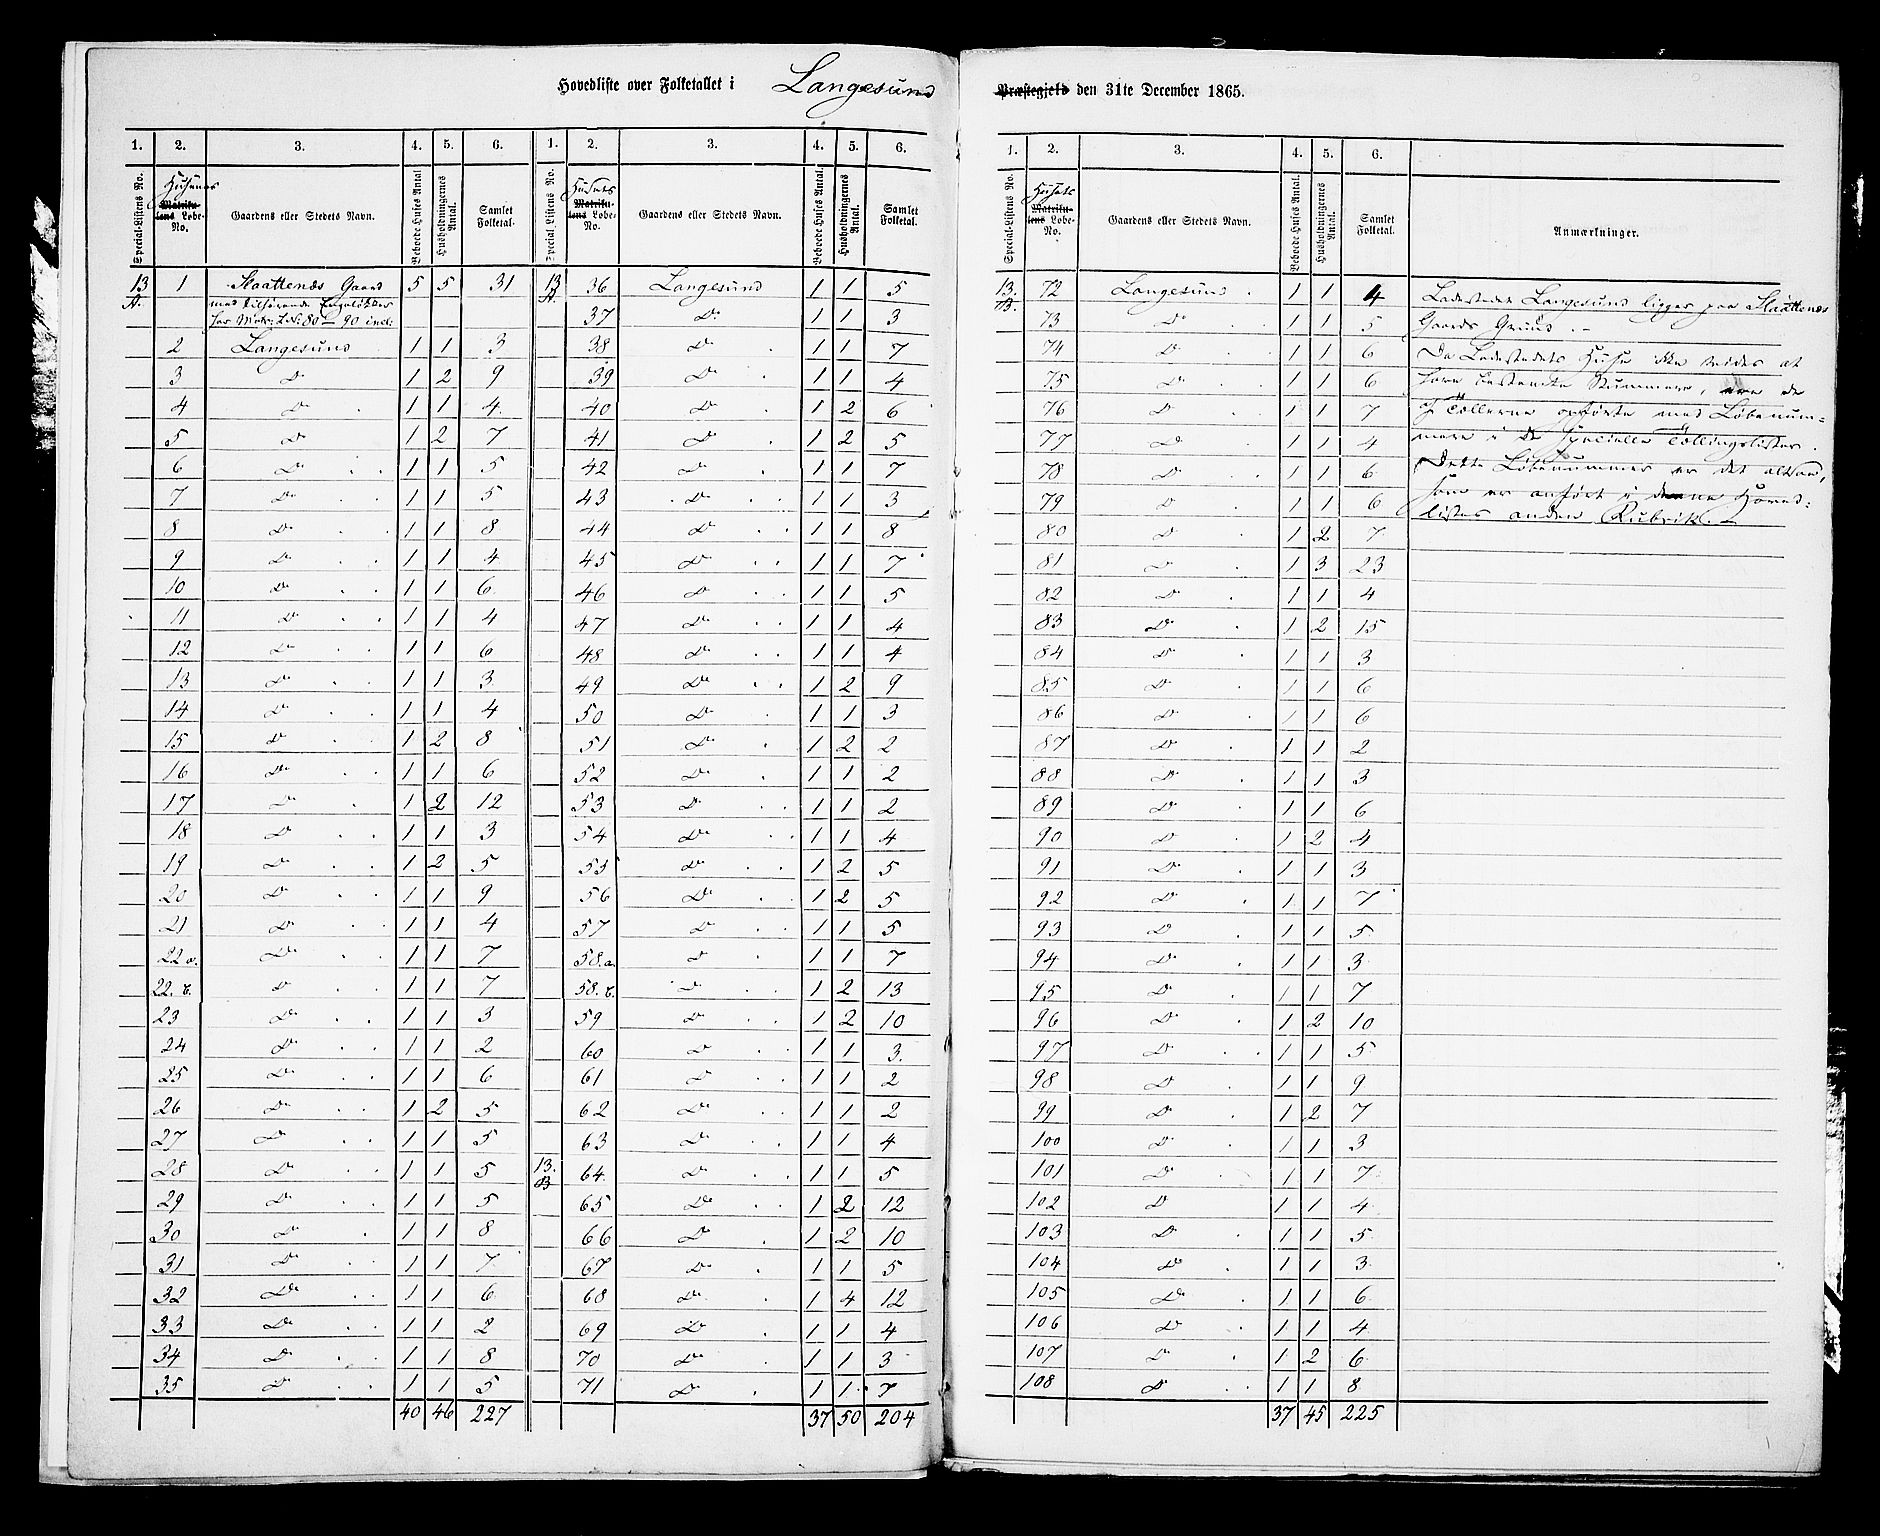 Hovedliste over Folketallet i Langesund Præstegjeld den 31te December 1865.
1. 2. 3. 4. 5. 6. 1. 2. 3. 4. 5. 6.
Special-Listens No. Husenes Matrikulens Løbe-No. Gaardens eller Stedets Navn. Beboede Huses Antal. Husholdningernes Antal. Samlet Folketal. Special Listens No. Husets Matrikulens Løbe-No. Gaardens eller Stedets Navn. Beboede Huses Antal. Husholdningernes Antal. Samlet Folketal.
13 A. 1 Slaattenæs Gaard 5 5 31 13 A. 36 Langesund 1 1 5
med tilhørende
har Matr: Lb: 80 – 90 incl: 37 Do 1 1 3
2 Langesund 1 1 3 38 Do 1 1 7
3 Do 1 2 9 39 Do 1 1 4
4 Do 1 1 4 40 Do 1 2 6
5 Do 1 2 7 41 Do 1 2 5
6 Do 1 1 5 42 Do 1 1 7
7 Do 1 1 5 43 Do 1 1 3
8 Do 1 1 8 44 Do 1 1 8
9 Do 1 1 4 45 Do 1 1 7
10 Do 1 1 6 46 Do 1 1 5
11 Do 1 1 4 47 Do 1 1 4
12 Do 1 1 6 48 Do 1 1 4
13 Do 1 1 3 49 Do 1 2 9
14 Do 1 1 4 50 Do 1 1 3
15 Do 1 2 8 51 Do 1 2 2
16 Do 1 1 6 52 Do 1 1 2
17 Do 1 2 12 53 Do 1 1 2
18 Do 1 1 3 54 Do 1 1 4
19 Do 1 2 5 55 Do 1 2 5
20 Do 1 1 9 56 Do 1 2 5
21 Do 1 1 4 57 Do 1 1 5
22 a. Do 1 1 7 58. a. Do 1 1 7
22. b. Do 1 1 7 58. b. Do 1 2 13
23 Do 1 1 3 59 Do 1 2 10
24 Do 1 1 2 60 Do 1 1 3.
25 Do 1 1 6 61 Do 1 1 2
26 Do 1 2 5 62 Do 1 1 2
27 Do 1 1 5 63 Do 1 1 4
28 Do 1 1 5 13. B 64. Do 1 1 5
29 Do 1 1 5 65 Do 1 2 12
30 Do 1 1 8 66 Do 1 2 10
31 Do 1 1 7 67 Do 1 1 5
32 Do 1 1 6 68 Do 1 4 12
33 Do 1 1 2 69 Do 1 1 4
34 Do 1 1 8 70 Do 1 1 3
35 Do 1 1 5 71 Do 1 1 7
40 46 227 37 50 204
1. 2. 3. 4. 5. 6.
Special-Listens No. Husets Matrikulens Løbe-No. Gaardens eller Stedets Navn. Beboede Huses Antal. Husholdningernes Antal. Samlet Folketal. Anmærkninger.
13. B. 72 Langesund 1 1 4 Ladestedet Langesund ligger paa Slaattenæs
73 Do 1 1 5 Gaards Grund. –
74 Do 1 1 6 Da Ladestedets Huse ikke vides at
75 Do 1 1 6 have bestemte Nummere, ere de
76 Do 1 1 7 af Tællerne opførte med Løbenum-
77 Do 1 1 4 mere i de specielle Tællingslister.
78 Do 1 1 6 Dette Løbenummer er det altsaa,
79 Do 1 1 6 som er anført i denne Hoved-
80 Do 1 2 7 listes anden Rubrik. –
81 Do 1 3 23
82 Do 1 1 4
83 Do 1 2 15
84 Do 1 1 3
85 Do 1 1 6
86 Do 1 1 6
87 Do 1 1 2
88 Do 1 1 3
89 Do 1 1 6
90 Do 1 2 4
91 Do 1 1 3
92 Do 1 1 7
93 Do 1 1 5
94 Do 1 1 3
95 Do 1 1 7
96 Do 1 2 10
97 Do 1 1 5
98 Do 1 1 9
99 Do 1 2 7
100 Do 1 1 3
101 Do 1 1 7
102 Do 1 1 4
103 Do 1 1 5
104 Do 1 1 3
105 Do 1 1 6
106 Do 1 1 4
107 Do 1 2 6
108 Do 1 1 8
37 45 225